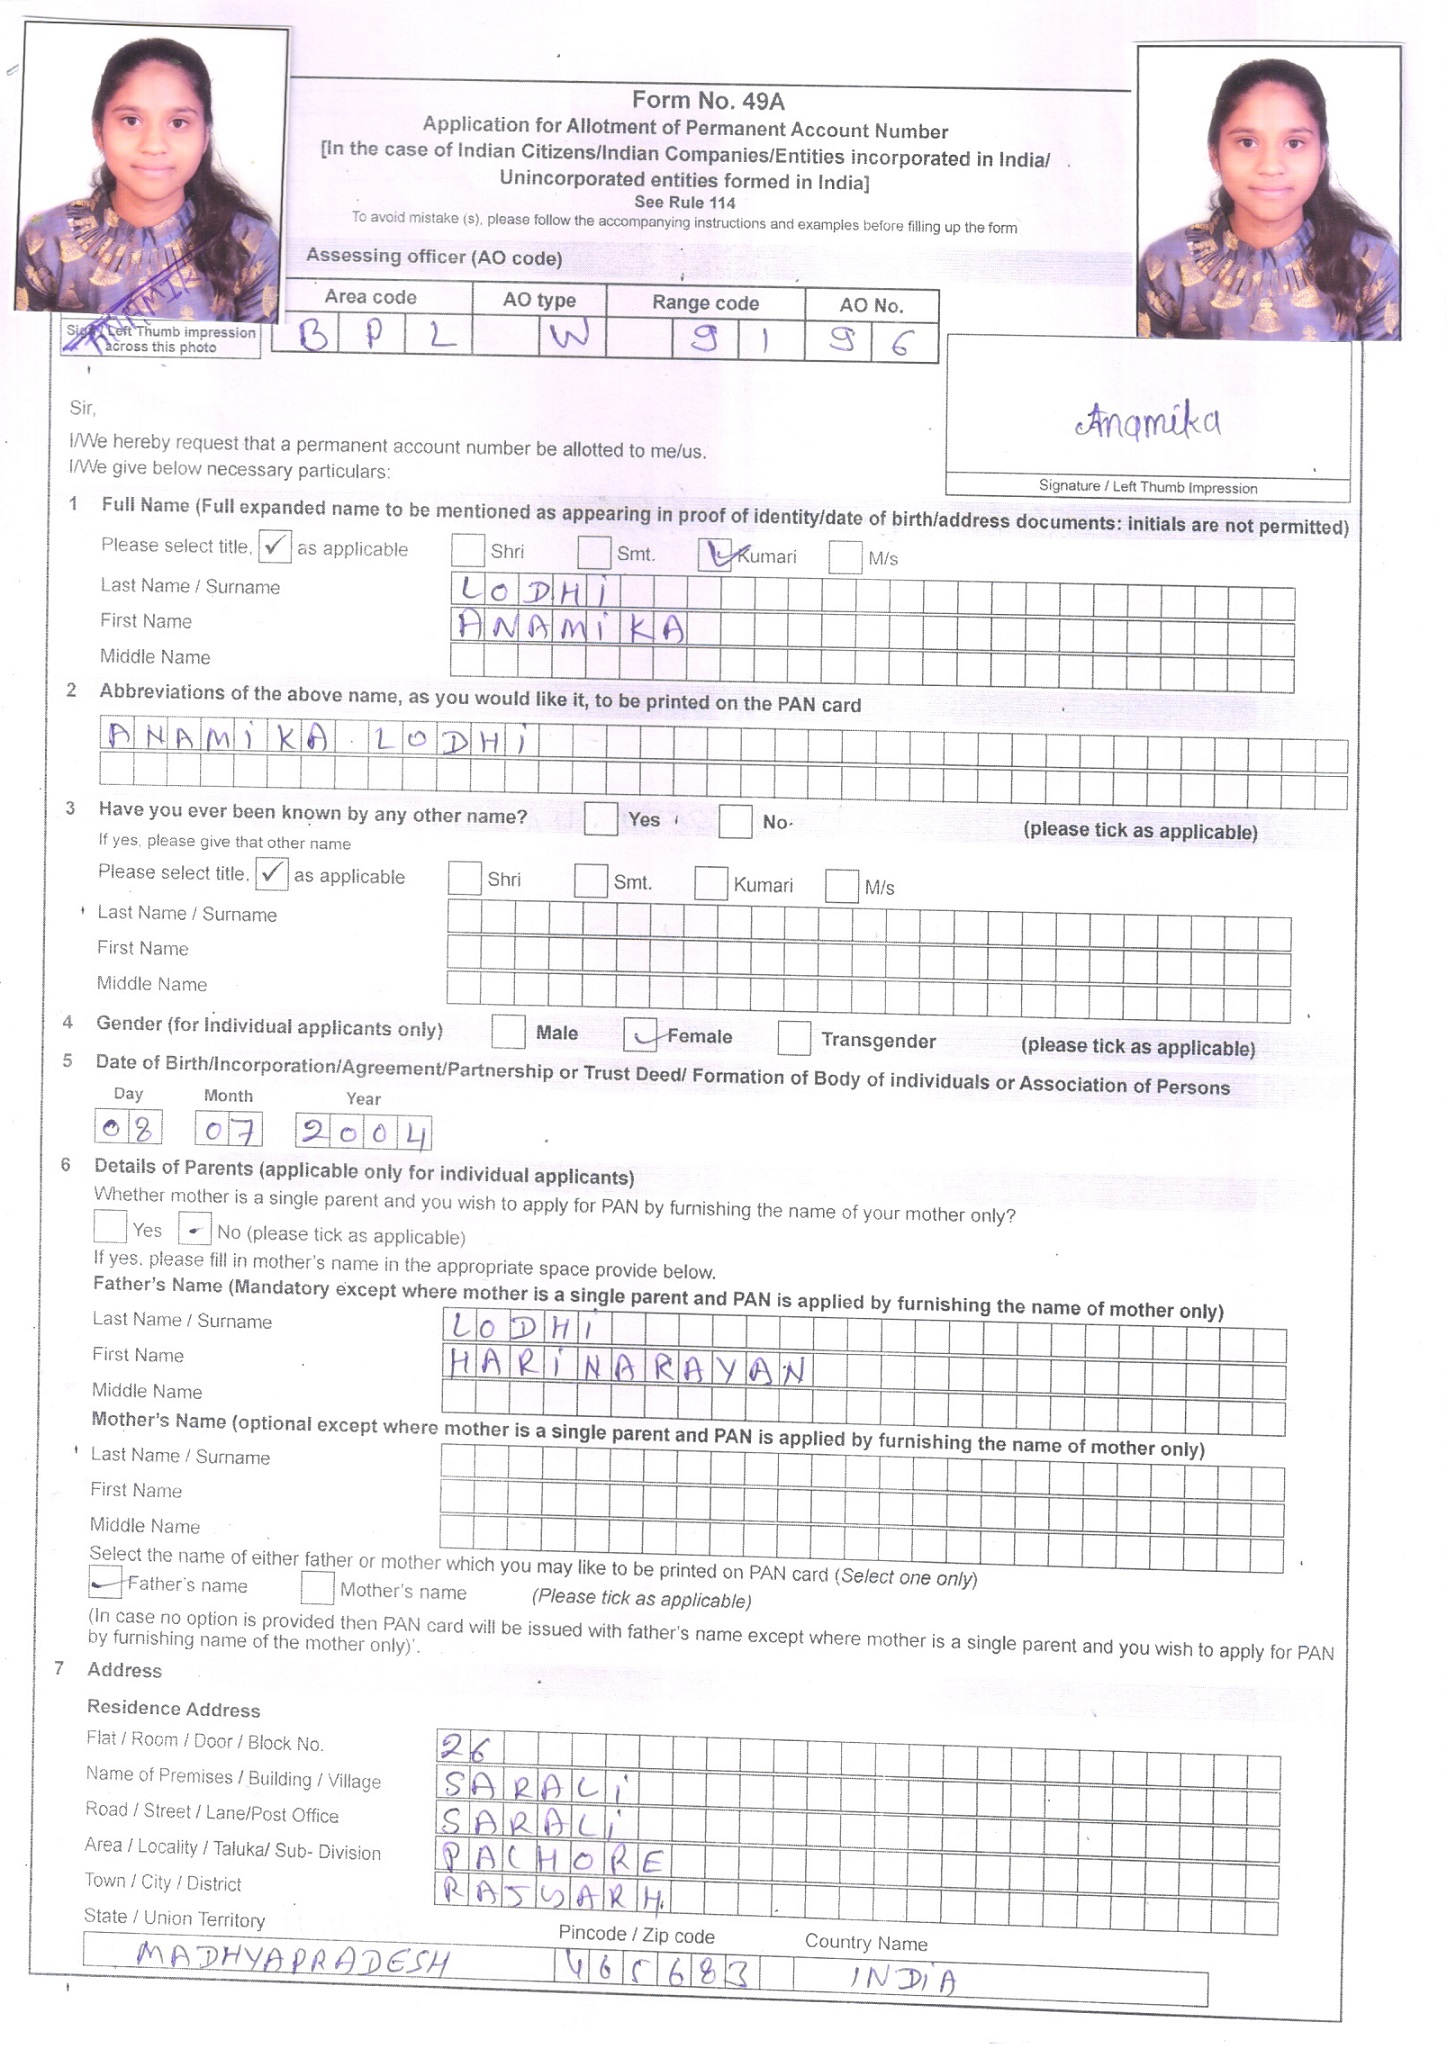 Form No. 49A
Application for Allotment of Permanent Account Number
[In the case of Indian Citizens/Indian Companies/Entities incorporated in India/
Unincorporated entities formed in India]
See Rule 114
To avoid mistake (s), please follow the accompanying instructions and examples before filling up the form
Assessing officer (AO code)
Area code AO type Range code AO No.
BPL W 91 96
Sign / Left Thumb impression
across this photo
Anamika
Signature / Left Thumb Impression
Sir,
I/We hereby request that a permanent account number be allotted to me/us.
I/We give below necessary particulars:
1 Full Name (Full expanded name to be mentioned as appearing in proof of identity/date of birth/address documents: initials are not permitted)
Please select title, ✓ as applicable Shri Smt. Kumari M/s
Last Name / Surname LODHI
First Name ANAMIKA
Middle Name
2 Abbreviations of the above name, as you would like it, to be printed on the PAN card
ANAMIKA LODHI
3 Have you ever been known by any other name? Yes No (please tick as applicable)
If yes, please give that other name
Please select title, ✓ as applicable Shri Smt. Kumari M/s
Last Name / Surname
First Name
Middle Name
4 Gender (for Individual applicants only) Male Female Transgender (please tick as applicable)
5 Date of Birth/Incorporation/Agreement/Partnership or Trust Deed/ Formation of Body of individuals or Association of Persons
Day Month Year
08 07 2004
6 Details of Parents (applicable only for individual applicants)
Whether mother is a single parent and you wish to apply for PAN by furnishing the name of your mother only?
Yes No (please tick as applicable)
If yes, please fill in mother's name in the appropriate space provide below.
Father's Name (Mandatory except where mother is a single parent and PAN is applied by furnishing the name of mother only)
Last Name / Surname LODHI
First Name HARINARAYAN
Middle Name
Mother's Name (optional except where mother is a single parent and PAN is applied by furnishing the name of mother only)
Last Name / Surname
First Name
Middle Name
Select the name of either father or mother which you may like to be printed on PAN card (Select one only)
Father's name Mother's name (Please tick as applicable)
(In case no option is provided then PAN card will be issued with father's name except where mother is a single parent and you wish to apply for PAN
by furnishing name of the mother only)'.
7 Address
Residence Address
Flat / Room / Door / Block No. 26
Name of Premises / Building / Village SARALI
Road / Street / Lane/Post Office SARALI
Area / Locality / Taluka/ Sub- Division PACHORE
Town / City / District RAJGARH
State / Union Territory Pincode / Zip code Country Name
MADHYAPRADESH 465683 INDIA